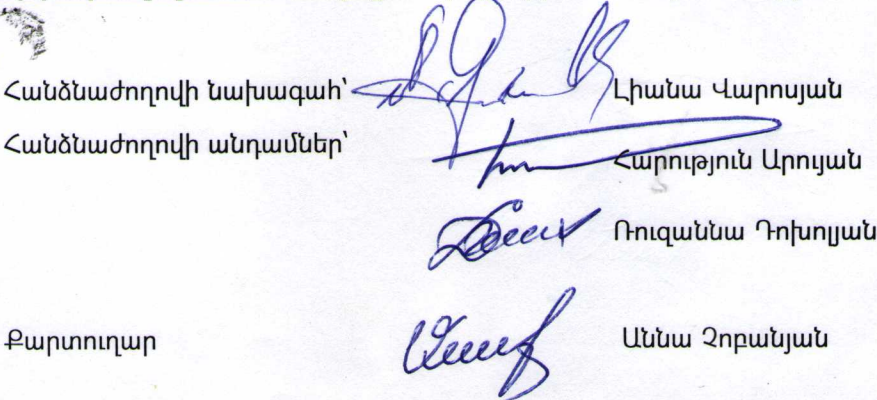 Հանձնաժողովի նախագահ՝ Լիանա Վարոսյան
Հանձնաժողովի անդամներ՝
Հարություն Արույան
Ռուզաննա Դոխոլյան
Քարտուղար Աննա Չոբանյան